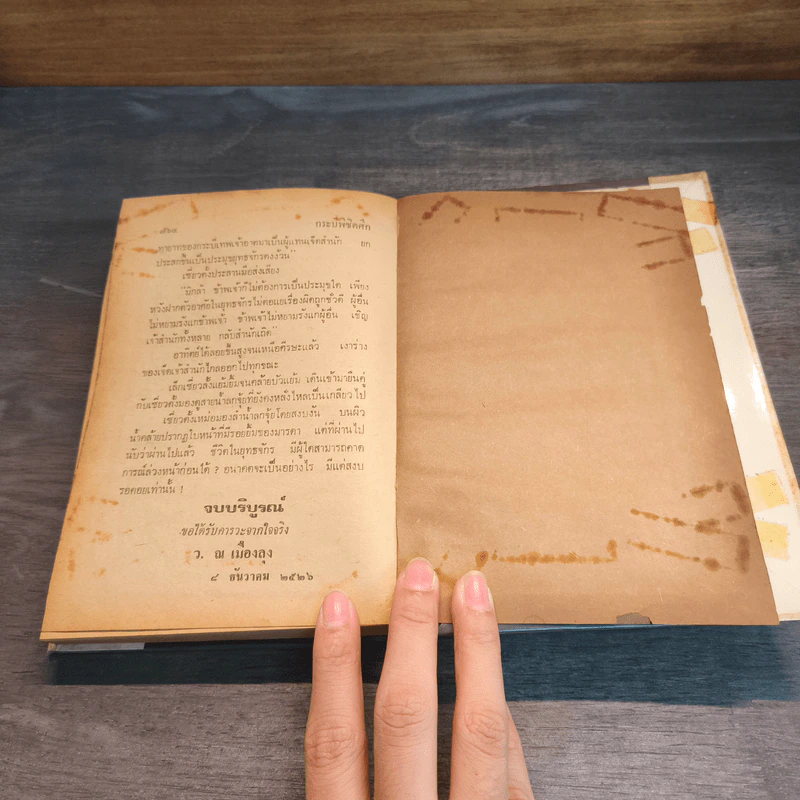 ๕๖๔ กระบี่พิชิตศึก
ทายาทของกระบี่เทพเจ้าอาคมาเป็นผู้แทนเจ็ดสำนัก ยก
ประสกขึ้นเป็นประมุขยุทธจักรดงง้วน"
เซี่ยวตั้งประสานมือส่งเสียง
"มิกล้า ข้าพเจ้าก็ไม่ต้องการเป็นประมุขใด เพียง
หวังฝากตัวอาศัยในยุทธจักรไม่คอแยเรื่องผิดถูกชั่วดี ผู้อื่น
ไม่หยามรังแกข้าพเจ้า ข้าพเจ้าไม่หยามรังแกผู้อื่น เชิญ
เจ้าสำนักทั้งหลาย กลับสำนักเถิด"
อาทิตย์ได้ลอยขึ้นสูงจนเหนือศีรษะแล้ว เงาร่าง
ของเจ็ดเจ้าสำนักไกลออกไปทุกขณะ
เล็กเซี่ยวลั้งแย้มยิ้มจนคล้ายบัวแย้ม เดินเข้ามายืนคู่
กับเซี่ยวตั้งมองดูสายน้ำลกจุ้ยที่ยังคงหลั่งไหลเป็นเกลียวไป
เซี่ยวตั้งเหม่อมองลำน้ำลกจุ้ยโดยสงบงัน บนผิว
น้ำคล้ายปรากฏใบหน้าที่มีรอยยิ้มของมารดา แต่ที่ผ่านไป
นับว่าผ่านไปแล้ว ชีวิตในยุทธจักร มีผู้ใดสามารถคาด
การณ์ล่วงหน้าก่อนได้ ? อนาคตจะเป็นอย่างไร มีแต่สงบ
รอคอยเท่านั้น !
จบบริบูรณ์
ขอได้รับคารวะจากใจจริง
ว. ณ เมืองลุง
๘ ธันวาคม ๒๕๒๖